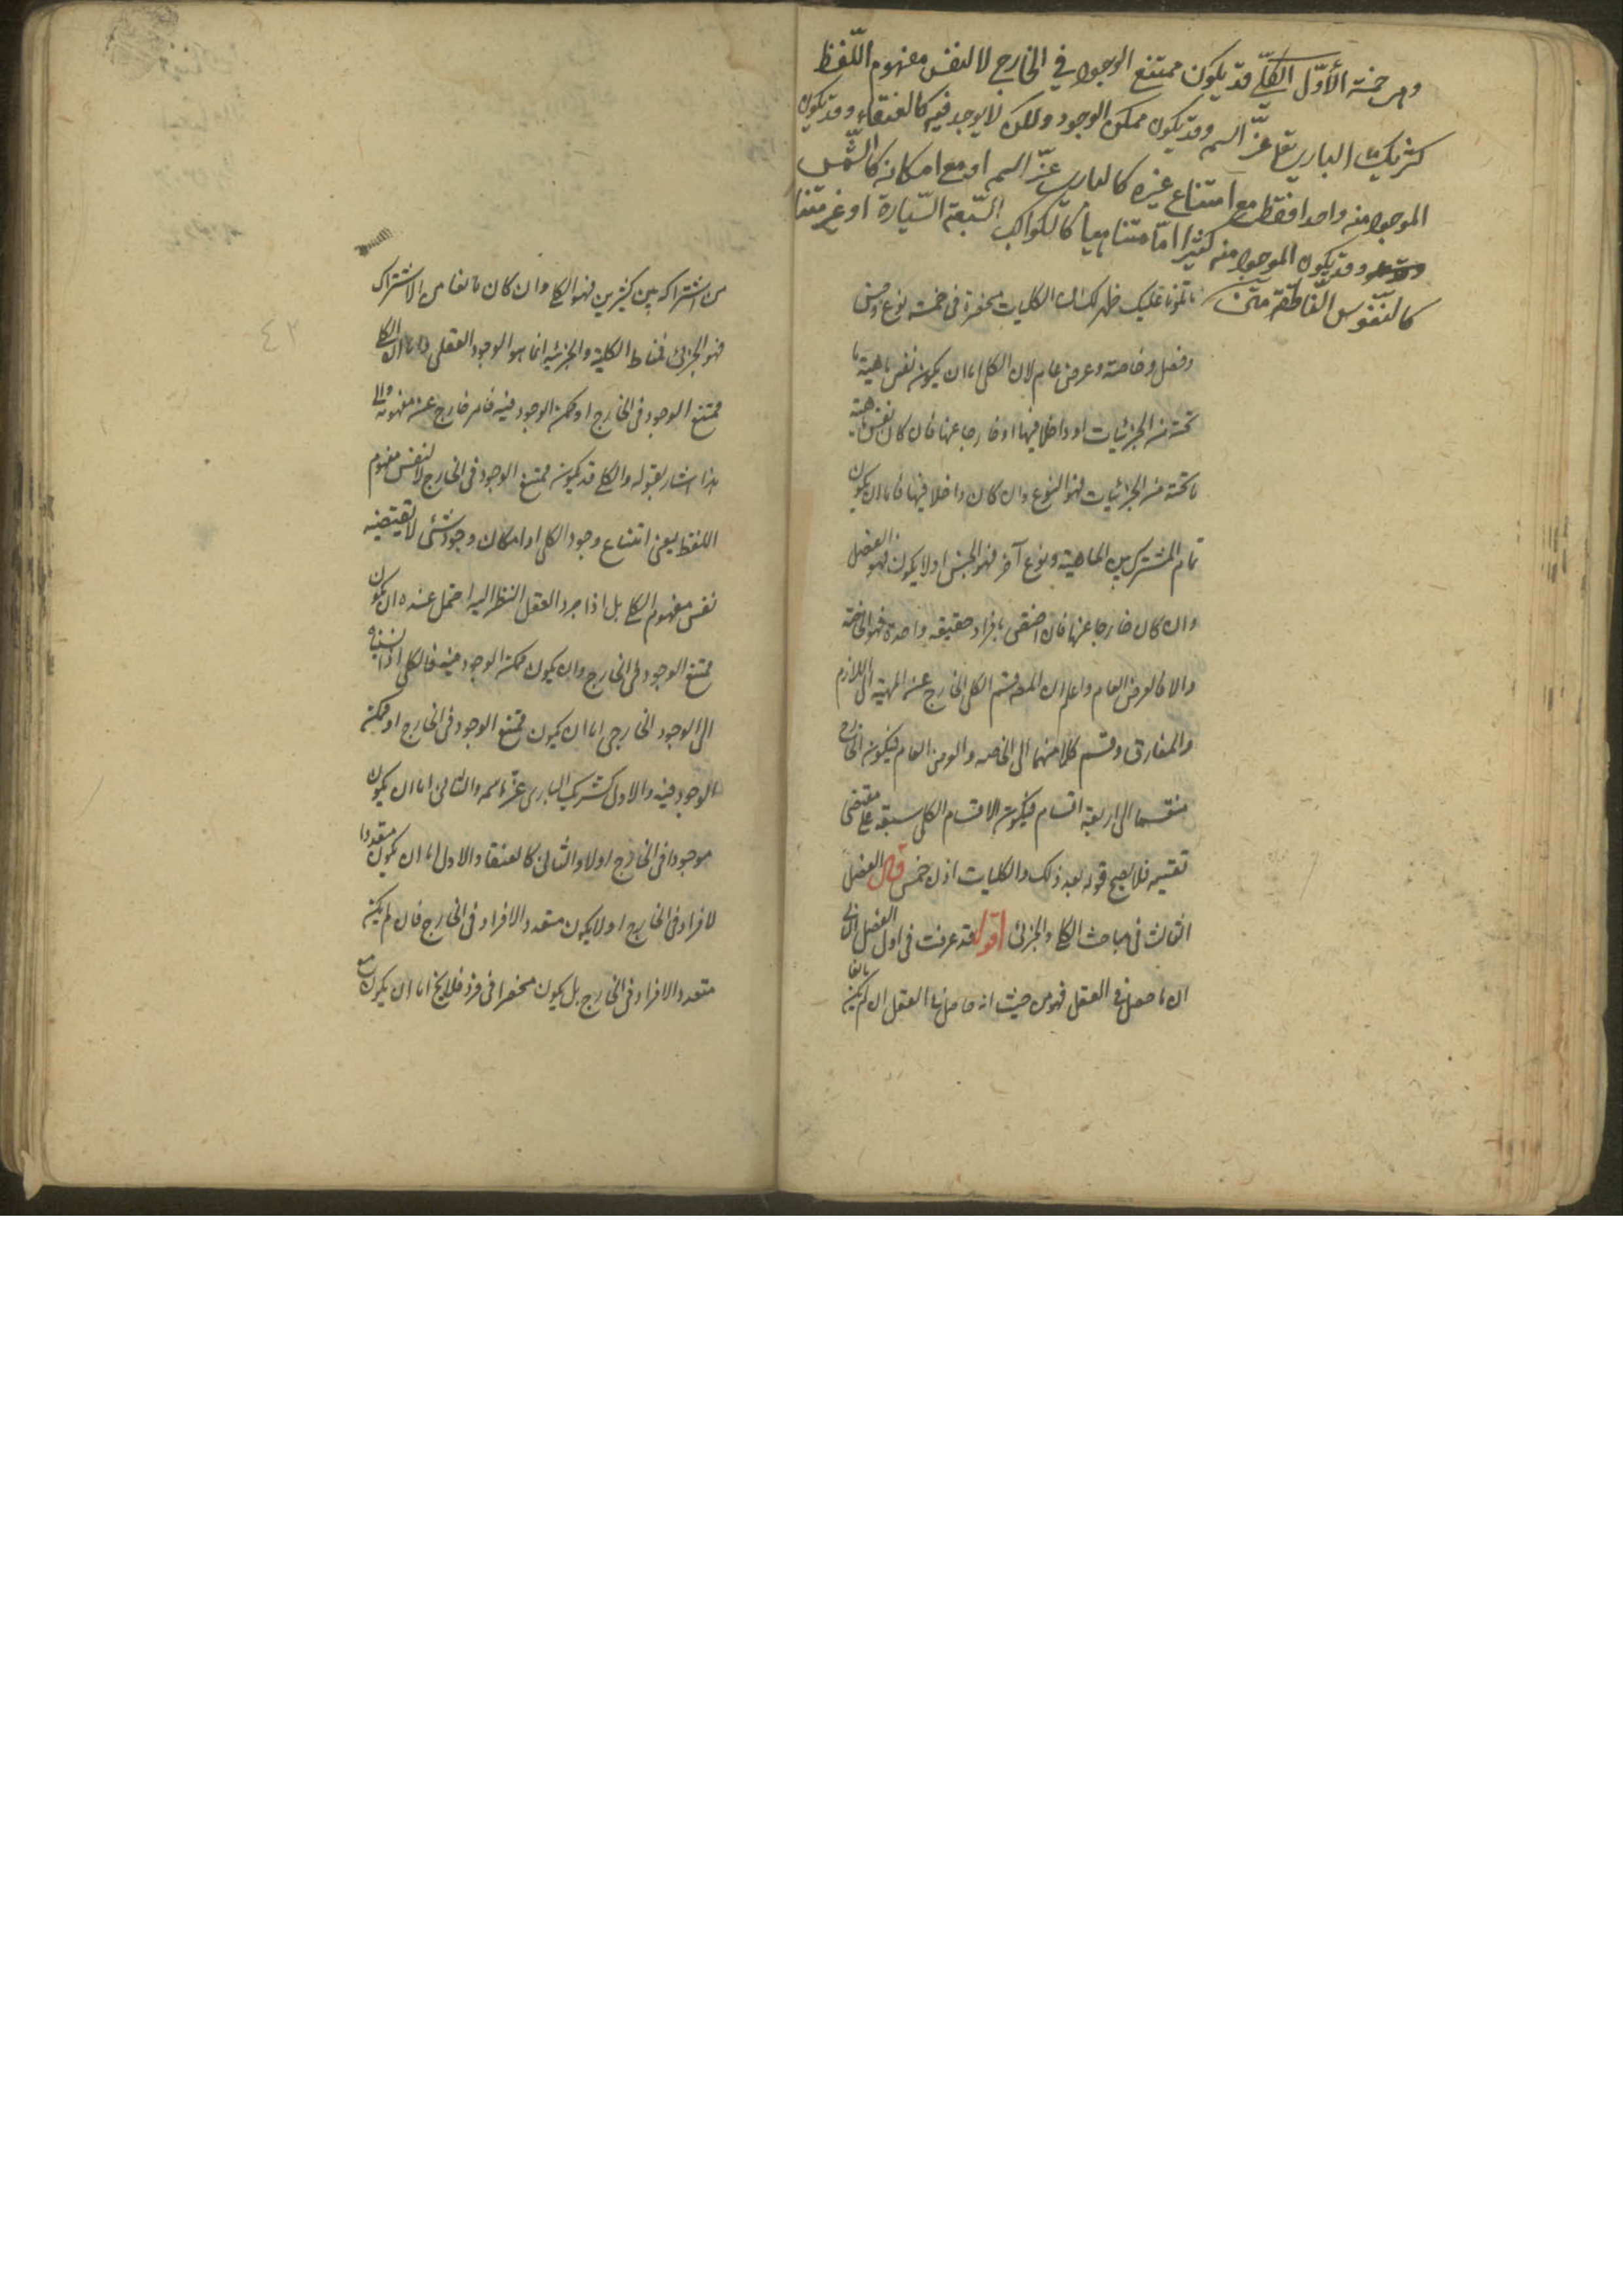 وهى خمسة الأوّل الكلّي قد يكون ممتنع الوجود في الخارج لا لنفس مفهوم اللّفظ
كشريك البارى تعا عزّ اسمه وقد يكون ممكن الوجود ولكن لا يوجد فيه كالعنقاء وقد يكون
الموجود منه واحدا فقط مع امتناع غيره كالبارى عزّ اسمه او مع امكانه كالشّمس
وقد يكون الموجود منه كثيرا امّا متناهيا كالكواكب السّبعة السّيارة او غير متناه
كالنّفوس النّاطقة متن
ما تلونا عليك ظهر لك ان الكليات منحصرة فى خمسة نوع وجنس
وفصل وخاصة وعرض عام لان الكلى اما ان يكون نفس ماهية ما
تحته من الجزئيات او داخلا فيها او خارجا عنها فان كان نفس ماهية
ما تحته من الجزئيات فهو النوع وان كان داخلا فيها فاما ان يكون
تمام المشترك بين الماهية ونوع آخر فهو الجنس او لا يكون فهو الفصل
وان كان خارجا عنها فان اختص بافراد حقيقة واحدة فهو الخاصة
والا فالعرض العام واعلم ان المصه قسم الكلى الخارج عن المهية الى اللازم
والمفارق وقسم كلا منهما الى الخاصه والعرض العام فيكون الخارج
منقسما الى اربعة اقسام فيكون الاقسام الكلى سبعة على مقتضى
تقسيمه فلا يصح قوله بعد ذلك والكليات اذن خمس قال الفصل
الثالث فى مباحث الكلى والجزئى اقول قد عرفت فى اول الفصل الثانى
ان ما حصل فى العقل فهو من حيث انه حاصل فى العقل ان لم يكن مانعا
من اشتراكه بين كثيرين فهو الكلى وان كان مانعا من الاشتراك
فهو الجزئى فمناط الكلية والجزئية انما هو الوجود العقلى واما ان الكلى
ممتنع الوجود فى الخارج او ممكن الوجود فيه فامر خارج عن مفهومه والى
هذا اشار بقوله والكلى قد يكون ممتنع الوجود فى الخارج لا لنفس مفهوم
اللفظ يعنى امتناع وجود الكلى او امكان وجوده شئى لا يقتضيه
نفس مفهوم الكلى بل اذا جرد العقل النظر اليه احتمل عنده ان يكون
ممتنع الوجود فى الخارج وان يكون ممكن الوجود فيه فالكلى اذا نسبناه
الى الوجود الخارجى اما ان يكون ممتنع الوجود فى الخارج او ممكن
الوجود فيه والاول كشريك البارى عزّ اسمه والثانى اما ان يكون
موجودا فى الخارج او لا والثانى كالعنقاء والاول اما ان يكون متعددا
لافراد فى الخارج او لا يكون متعدد الافراد فى الخارج فان لم يكن
متعدد الافراد فى الخارج بل يكون منحصرا فى فرد فلا يخ اما ان يكون مع
٤٢